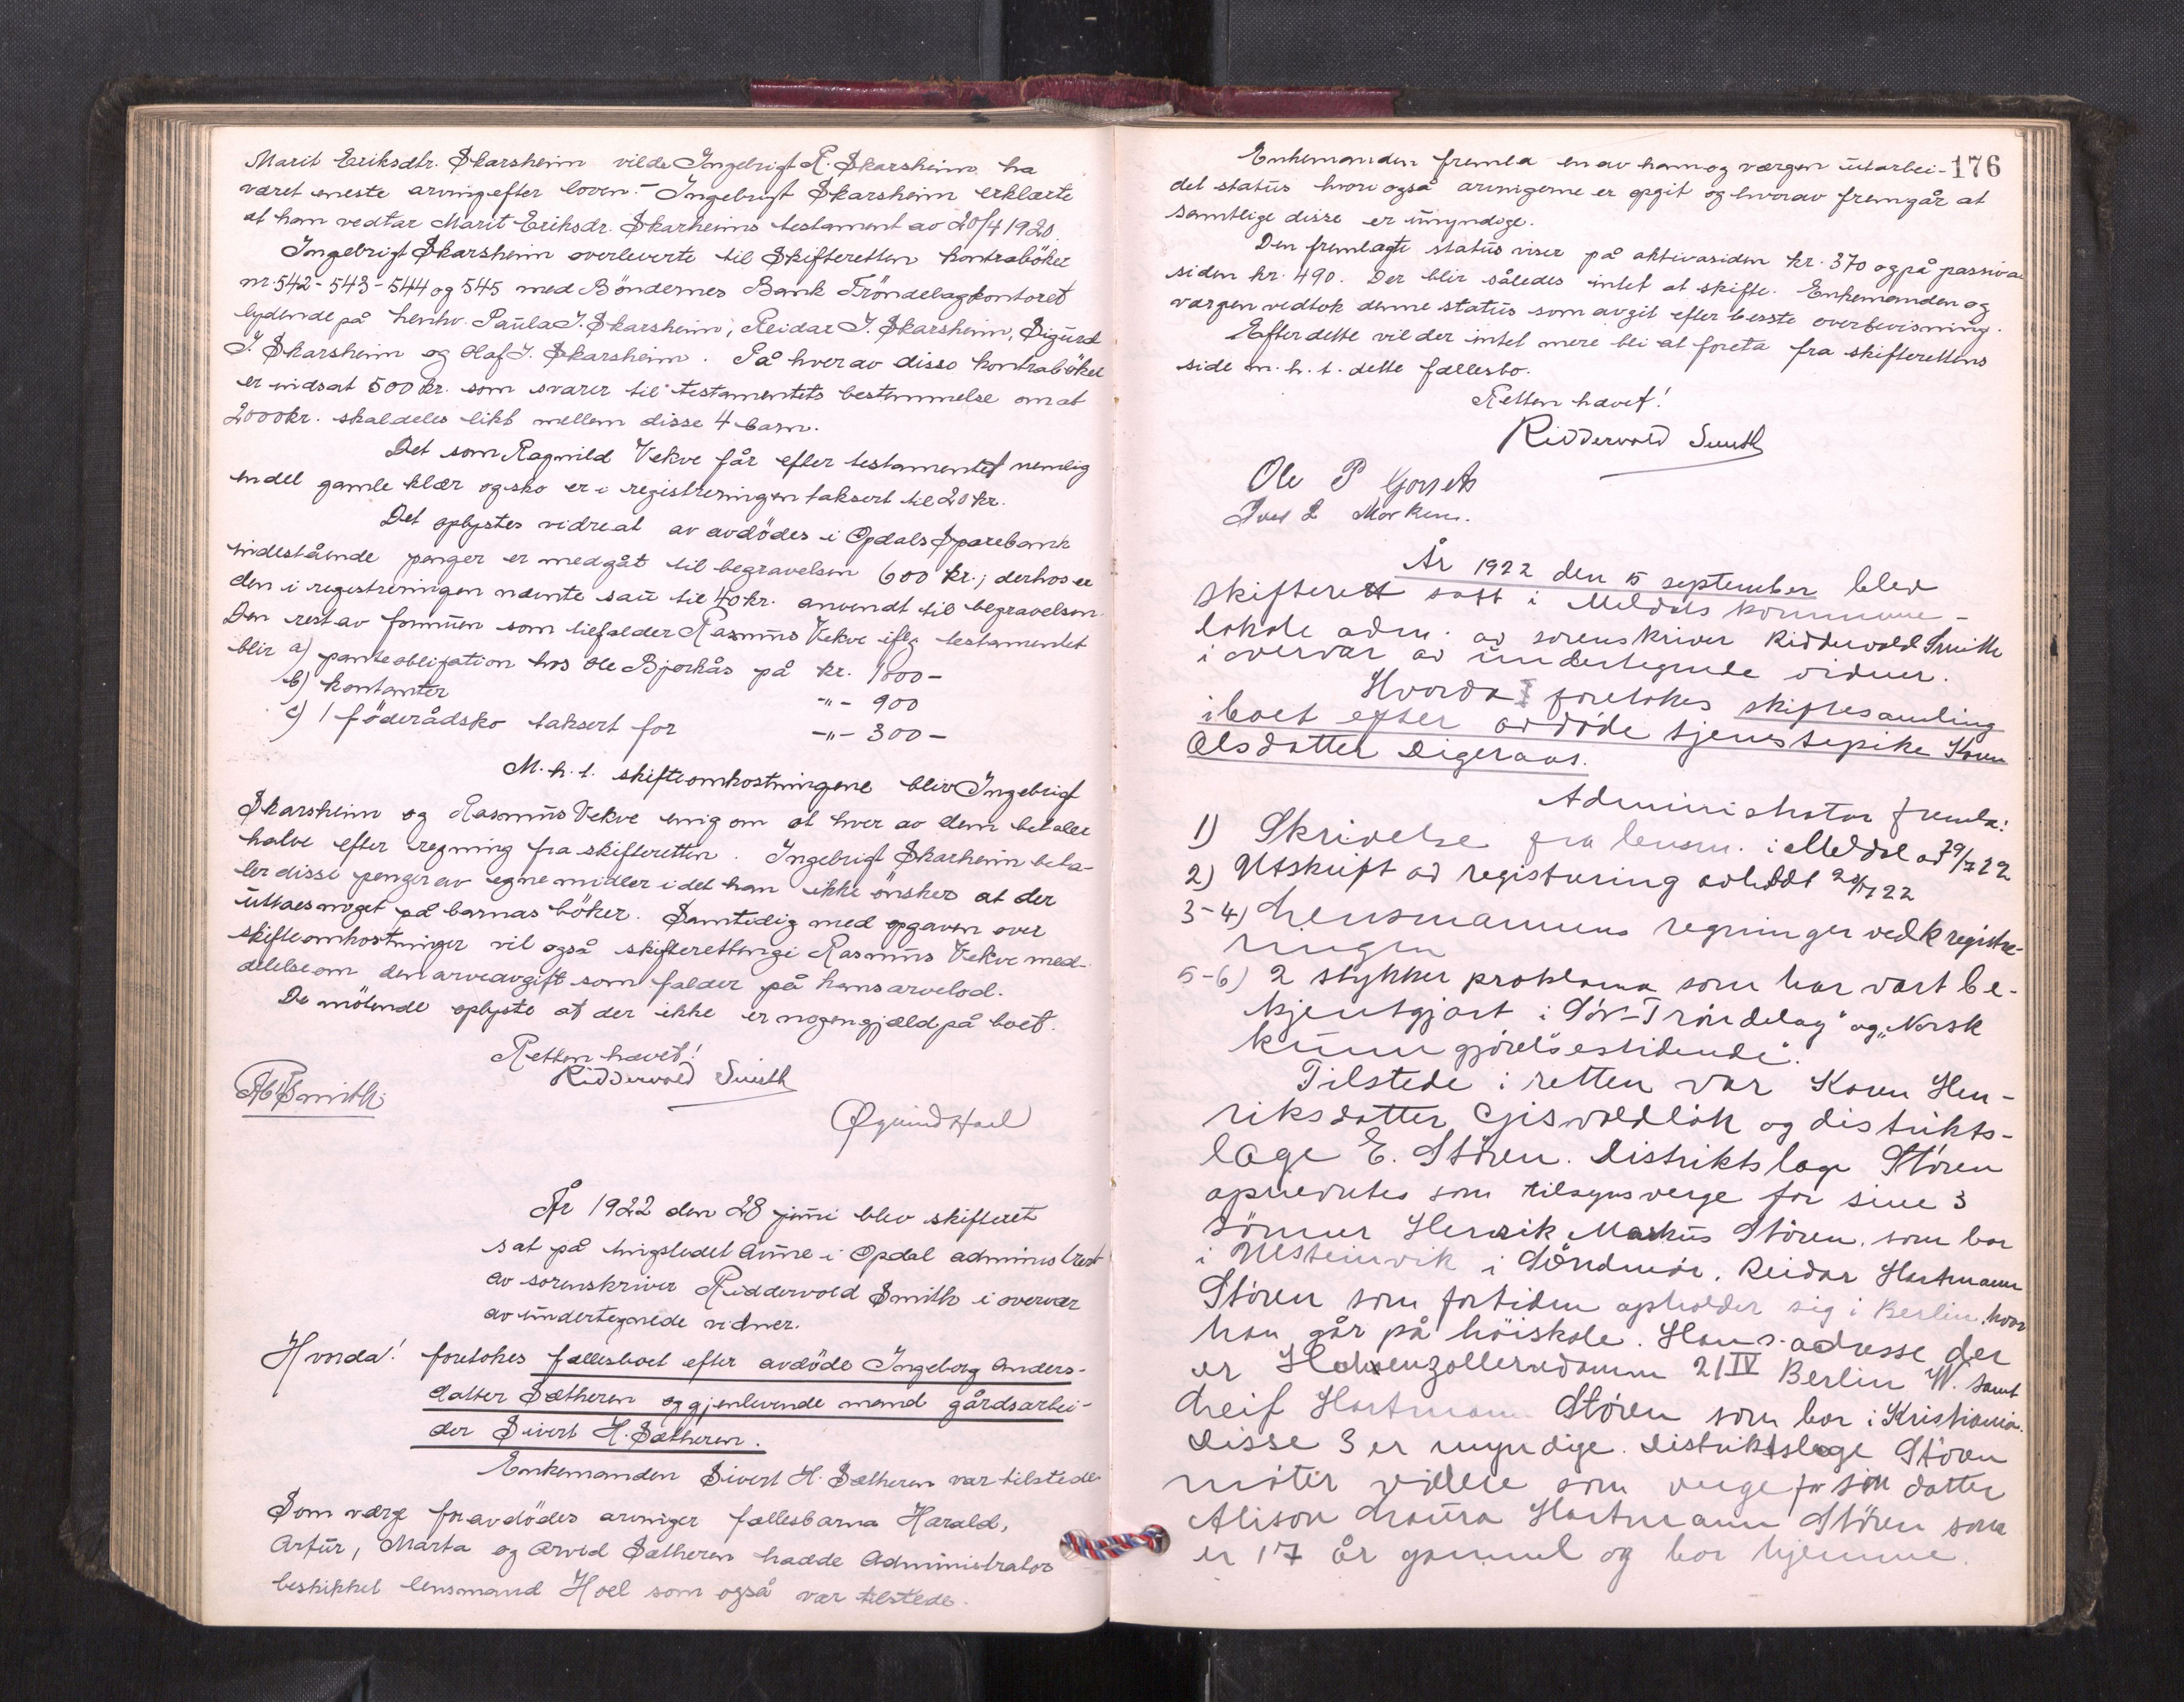 Marit Eriksdtr. Skarsheim vilde Ingebrigt R. Skarsheim ha
været eneste arving efter loven. - Ingebrigt Skarsheim erklærte
at han vedtar Marit Eriksdr. Skarheims testament av 20/4 1920.
Ingebrigt Skarsheim overleverte til Skifteretten kontraböker
nr. 542 - 543 - 544 og 545 med Böndernes Bank Tröndelagkontoret
lydende på henhv. Paula I. Skarsheim, Reidar I. Skarsheim, Sigurd
I. Skarsheim og Olaf I. Skarsheim. På hver av disse kontraböker
er indsat 500 kr. som svarer til testamentets bestemmelse om at
2000 kr. skal deles likt mellem disse 4 barn.
Det som Ragnild Vekve får efter testamentet nemlig
endel gamle klær og sko er i registreringen taksert til 20 kr.
Det oplystes vidre at av avdödes i Opdals Sparebank
indestående penger er medgåt til begravelsen 600 kr.; derhos er
den i registreringen nævnte sau til 40 kr. anvendt til begravelsen.
Den rest av formuen som tilfalder Rasmus Vekve iflg testamentet
blir a) panteobligation hos Ole Bjørkås på kr. 1800 -
b) kontanter -"- 900
c) 1 föderådsko taksert for -"- 300 -
M. h. t. skifteomkostningene blev Ingebrigt
Skarsheim og Rasmus Vekve enig om at hver av dem betaler
halve efter regning fra skifteretten. Ingebrigt Skarheim beta-
ler disse penger av egne midler idet han ikke önsker at der
uttaes noget på barnas böker. Samtidig med opgaven over
skifteomkostninger vil også skifteretten gi Rasmus Vekve med-
delelse om den arveavgift som falder på hans arvelod.
De mötende oplyste at der ikke er nogen gjæld på boet.
Retten hævet!
Riddervold Smith
Smith
Øyvind Hoel
År 1922 den 28 juni blev skifteret
sat på tingstedet Aune i Opdal administrert
av sorenskriver Riddervold Smith i overvær
av undertegnede vidner.
Hvorda! foretokes fællesboet efter avdöde Ingeborg Anders-
datter Sætheren og gjenlevende mand gårdsarbei-
der Sivert H. Sætheren.
Enkemanden Sivert H. Sætheren var tilstede.
Som værge for avdödes arvinger fællesbarna Harald,
Artur, Marta og Arvid Sætheren hadde Administrator
beskikket lensmand Hoel som også var tilstede.
176
Enkemanden fremla en av ham og værgen utarbei-
det status hvori også arvingerne er opgit og hvorav fremgår at
samtlige disse er umyndige.
Den fremlagte status viser på aktivasiden kr. 370 og på passiva
siden kr. 490. Der blir således intet at skifte. Enkemanden og
værgen vedtok denne status som avgit efter besste overbevisning.
Efter dette vil der intet mere bli at foreta fra skifterettens
side m. h. t. dette fællesbo.
Retten hævet!
Riddervold Smith
Ole P
År 1922 den 5 september blev
skifterett satt i Meldals kommune-
lokale adm. av sorenskriver Riddervold Smith
i overvær av undertegnede vidner.
Hvorda foretokes skiftesamling
i boet efter avdøde tjenestepike Karen
Olsdatter Digeraas.
Administrator fremla:
1) Skrivelse fra lensm. i Meldal av 29/7 22
2) Utskrift av registrering avholdt 20/7 22
3-4) Lensmannens regninger vedk registre-
ringen
5-6) 2 stykker proklama som har vært be-
kjentgjort i "Sør-Trøndelag" og "Norsk
kunngjørelsestidende".
Tilstede i retten var Karen Hen-
riksdatter Gisvoldløk og distrikts-
læge E. Støren. Distriktslæge Støren
opnevntes som tilsynsverge for sine 3
sønner Henrik Markus Støren, som bor
i Ulsteinvik i Søndmør, Reidar Hartmann
Støren som fortiden opholder sig i Berlin, hvor
han går på höiskole. Hans adresse der
er Hohenzollerndamm 21 IV Berlin W. samt
Leif Hartmann Støren som bor i Kristiania.
Disse 3 er myndige. Distriktslæge Støren
møter videre som verge for sin datter
Alison Laura Hartmann Støren som
er 17 år gammel og bor hjemme.